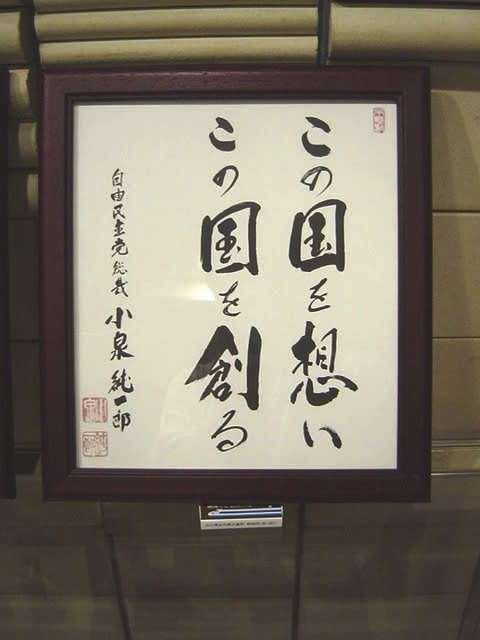 この国を想い
この国を創る
自由民主党総裁 小泉純一郎